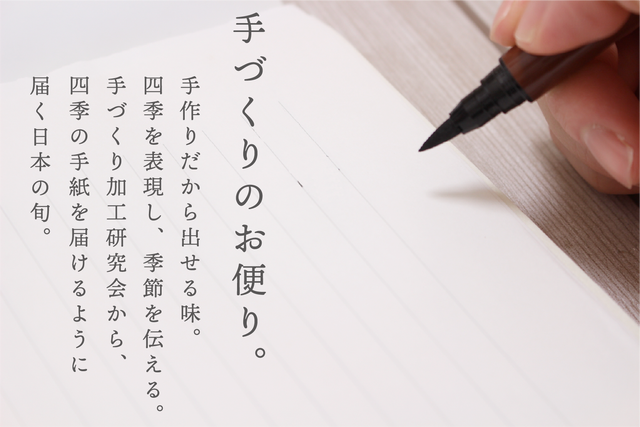 手づくりのお便り。
手作りだから出せる味。
四季を表現し、季節を伝える。
手づくり加工研究会から、
四季の手紙を届けるように
届く日本の旬。